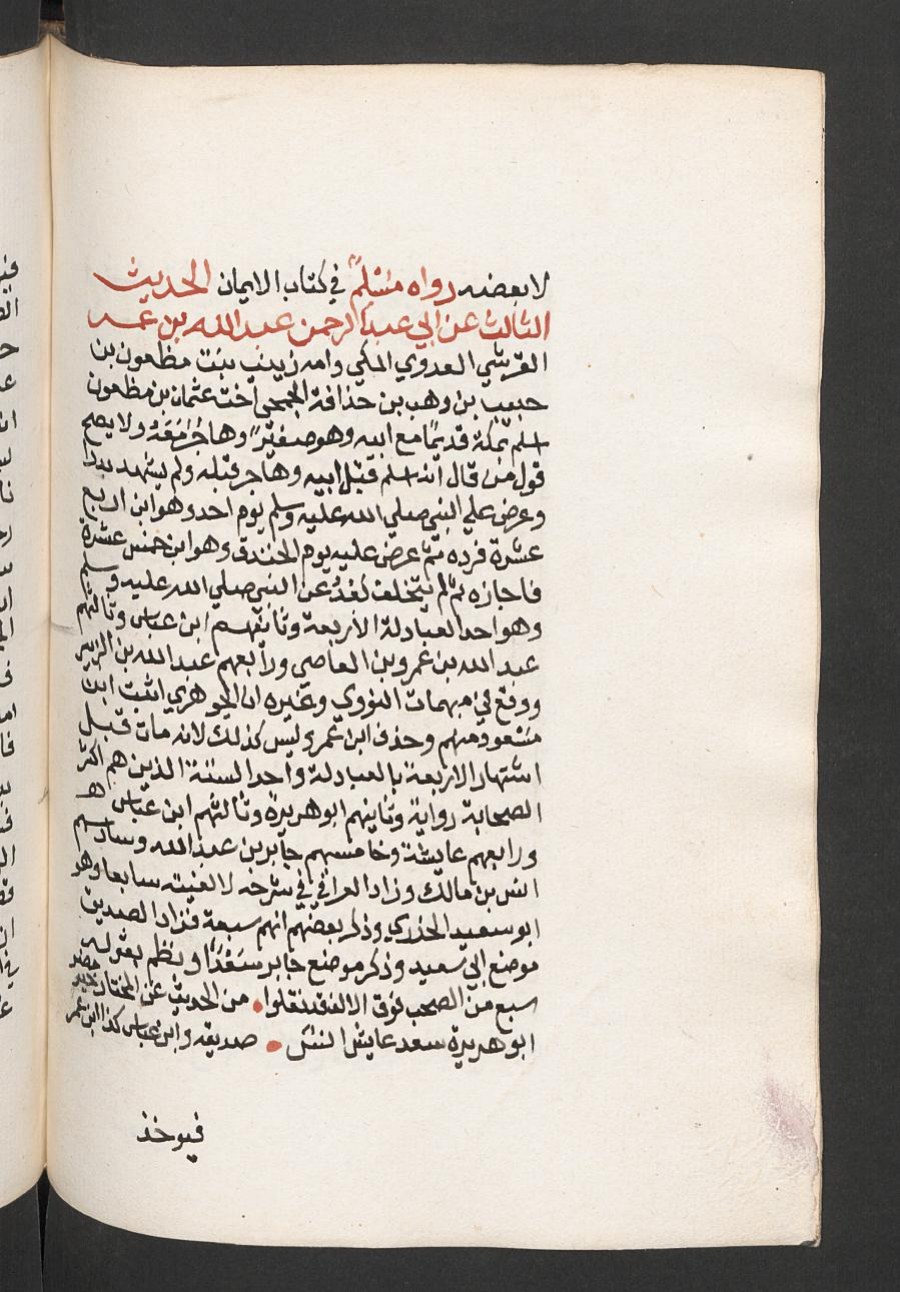 لا بعضه رواه مسلم في كتاب الايمان الحديث
الثالث عن ابي عبد الرحمن عبد الله بن عمر
القرشي العدوي المكي وامه زينب بنت مظعون بن
حبيب بن وهب بن حذافة الجمحي أخت عثمان بن مظعون
اسلم بمكة قديمًا مع ابيه وهو صغيرٌ وهاجر مَعَهُ ولا يصح
قول من قال انه اسلم قبل ابيه وهاجر قبله ولم يشهد بدرا
وعرض علي النبي صلي الله عليه وسلم يوم احد وهو ابن اربع
عشرة فرده ثم عرض عليه يوم الخندق وهو ابن خمس عشرة
فاجازه ثم لم يتخلف بَعْدُ عن النبي صلي الله عليه وسلم
وهو احد العبادلة الأربعة وثانيهم ابن عباس وثالثهم
عبد الله بن عمرو بن العاصي ورابعهم عبد الله بن الزبير
ووقع في مبهمات النووي وغيره ان الجوهري اثبت ابن
مسعود منهم وحذف ابن عمر وليس كذلك لانه مات قبل
اشتهار الاربعة بالعبادلة واحد الستة الذين هم اكثر
الصحابة رواية وثانيهم ابو هريرة وثالثهم ابن عباس
ورابعهم عايشة وخامسهم جابر بن عبد الله وسادسهم
انس بن مالك وزاد العراقي في شرحه لالفيته سابعا وهو
ابو سعيد الخدري وذكر بعضهم انهم سبعة فزاد الصديق
موضع ابي سعيد وذكر موضع جابر سَعْدًا ونظم بقوله
سبع من الصحب فوق الالف قد نقلوا من الحديث عن المختار خير مضر
ابو هريرة سعد عايش انس صديقه وابن عباس كذا ابن عمر
فيوخذ